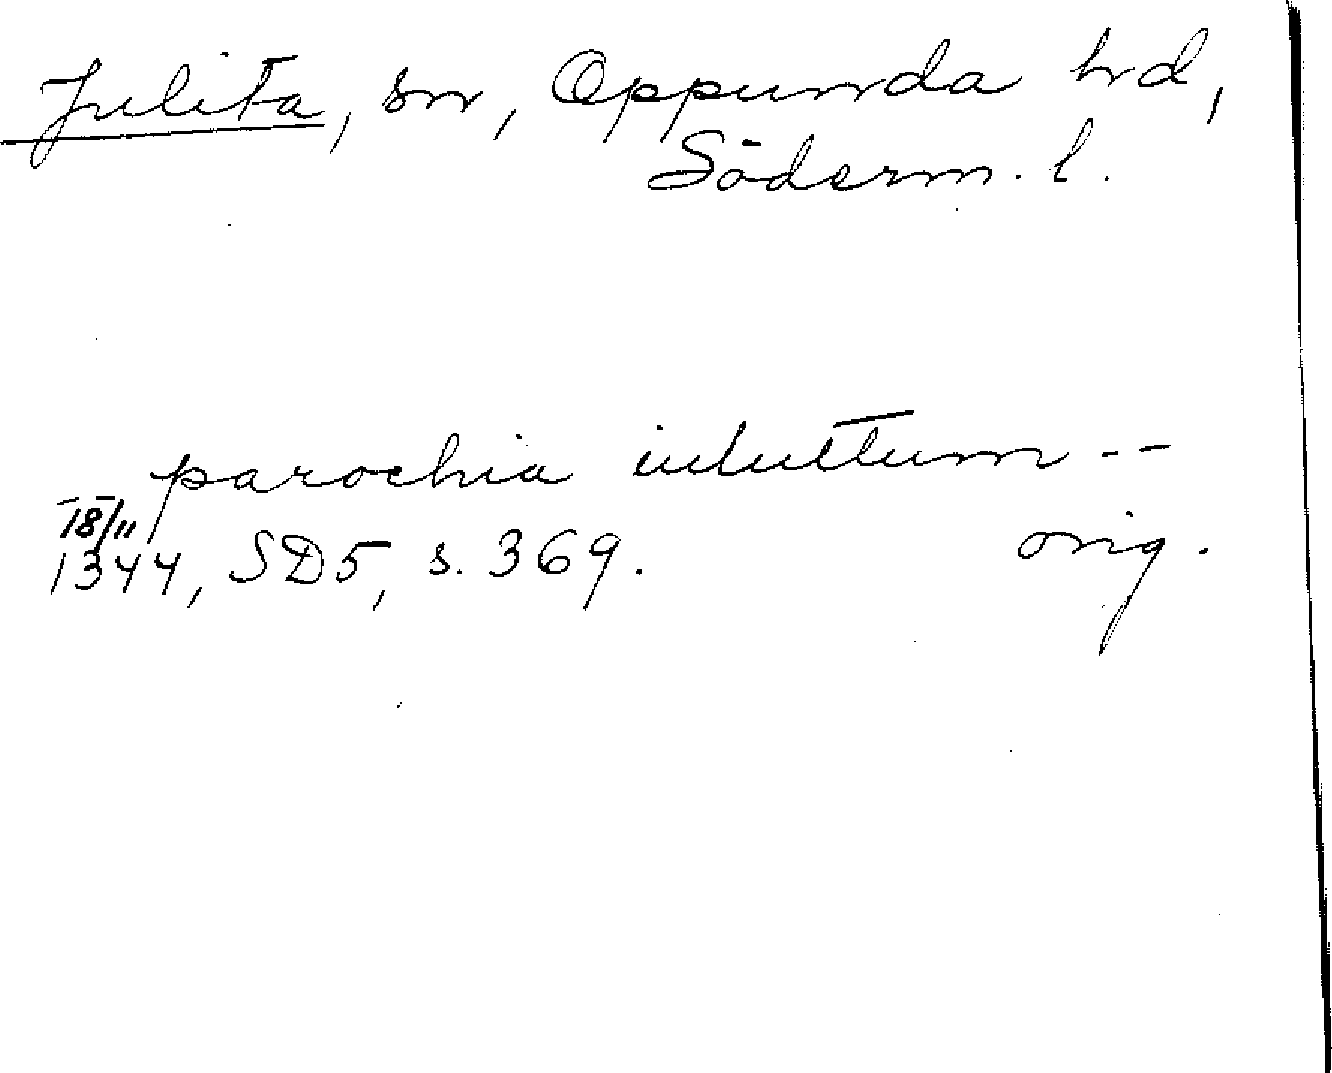 Julita, sn, Oppunda hd,
Söderm. l.
parochia iuluttum --
18/11
1344, SD5, s. 369. orig.